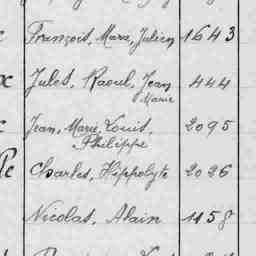 François, Marie, Julien 1643
Jules, Raoul, Jean 444
Marie
Jean, Marie, Louis, 2095
Philippe
Charles, Hippolyte 2026
Nicolas, Alain 1158